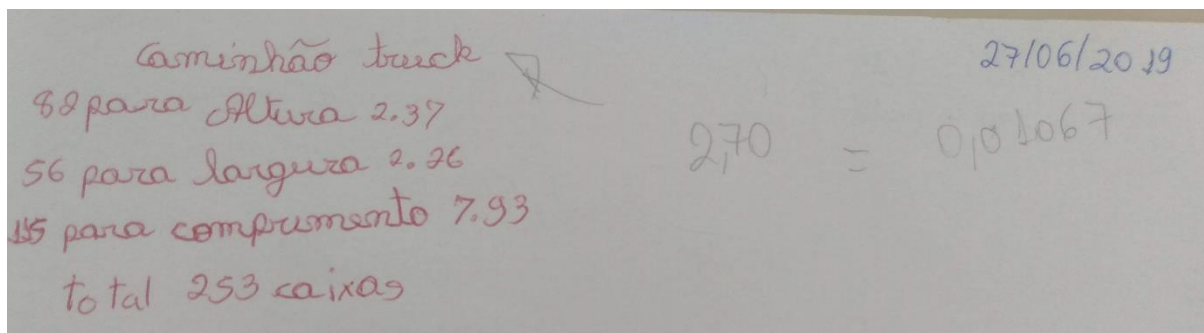 Caminhão truck
27/06/2019
82 para Altura 2.37
2,70 = 0,01067
56 para largura 2.26
115 para comprimento 7.93
total 253 caixas